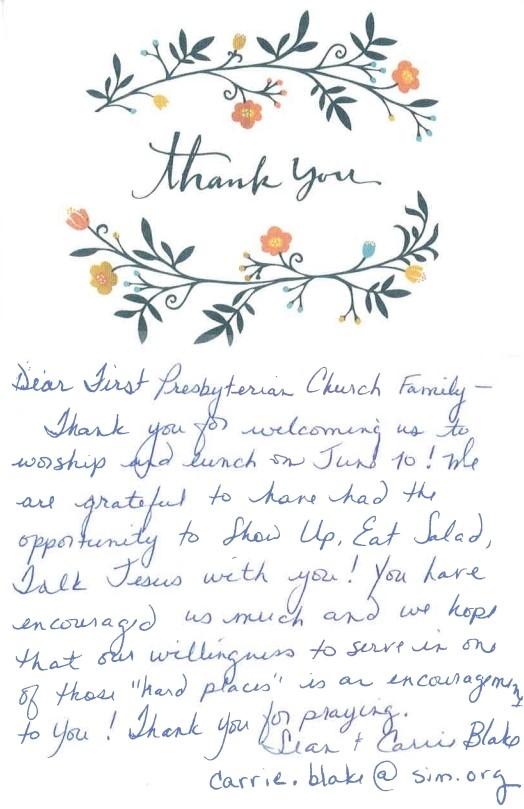 Thank You
Dear First Presbyterian Church Family —
Thank you for welcoming us to
worship and lunch on June 10! We
are grateful to have had the
opportunity to Show Up, Eat Salad,
Talk Jesus with you! You have
encouraged us much and we hope
that our willingness to serve in one
of those "hard places" is an encouragement
to you! Thank you for praying.
Sean + Carrie Blake
carrie.blake@sim.org